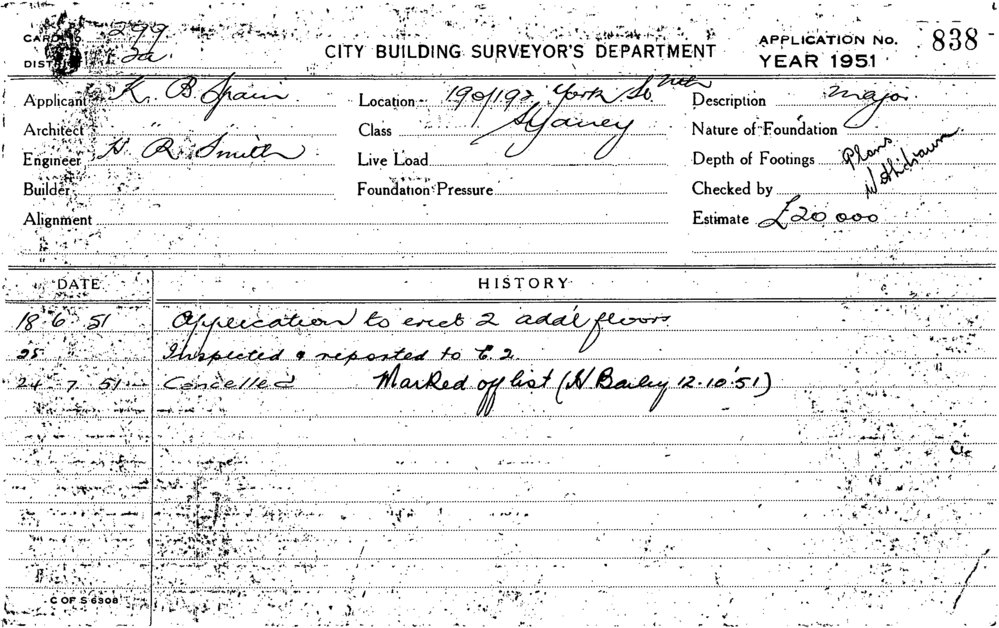 CARD No. 299
DISTRICT 2a
CITY BUILDING SURVEYOR'S DEPARTMENT
APPLICATION No. 838
YEAR 1951
Applicant K. B. Spain
Location 190/192 York St Nth
Sydney
Description Major
Architect
Class
Nature of Foundation
Engineer H R. Smith
Live Load
Depth of Footings
Plans Withdrawn
Builder
Foundation Pressure
Checked by
Alignment
Estimate £20 000
DATE HISTORY
18 6 51 Application to erect 2 addl floors
25 Inspected & reported to C. 2.
24 7 51 Cancelled Marked off list (H Bailey 12.10.'51)
C OF S 6308